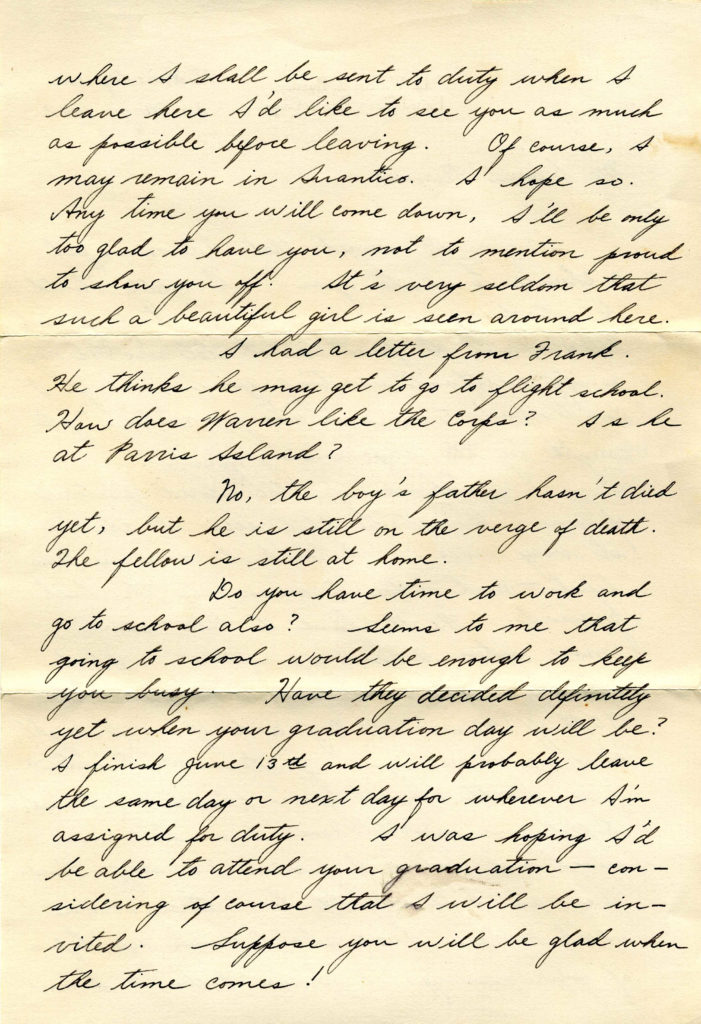 where I shall be sent to duty when I
leave here I'd like to see you as much
as possible before leaving. Of course, I
may remain in Quantico. I hope so.
Any time you will come down, I'll be only
too glad to have you, not to mention proud
to show you off. It's very seldom that
such a beautiful girl is seen around here.
I had a letter from Frank.
He thinks he may get to go to flight school.
How does Warren like the Corps? Is he
at Parris Island?
No, the boy's father hasn't died
yet, but he is still on the verge of death.
The fellow is still at home.
Do you have time to work and
go to school also? Seems to me that
going to school would be enough to keep
you busy. Have they decided definitely
yet when your graduation day will be?
I finish June 13th and will probably leave
the same day or next day for wherever I'm
assigned for duty. I was hoping I'd
be able to attend your graduation — con-
sidering of course that I will be in-
vited. Suppose you will be glad when
the time comes!